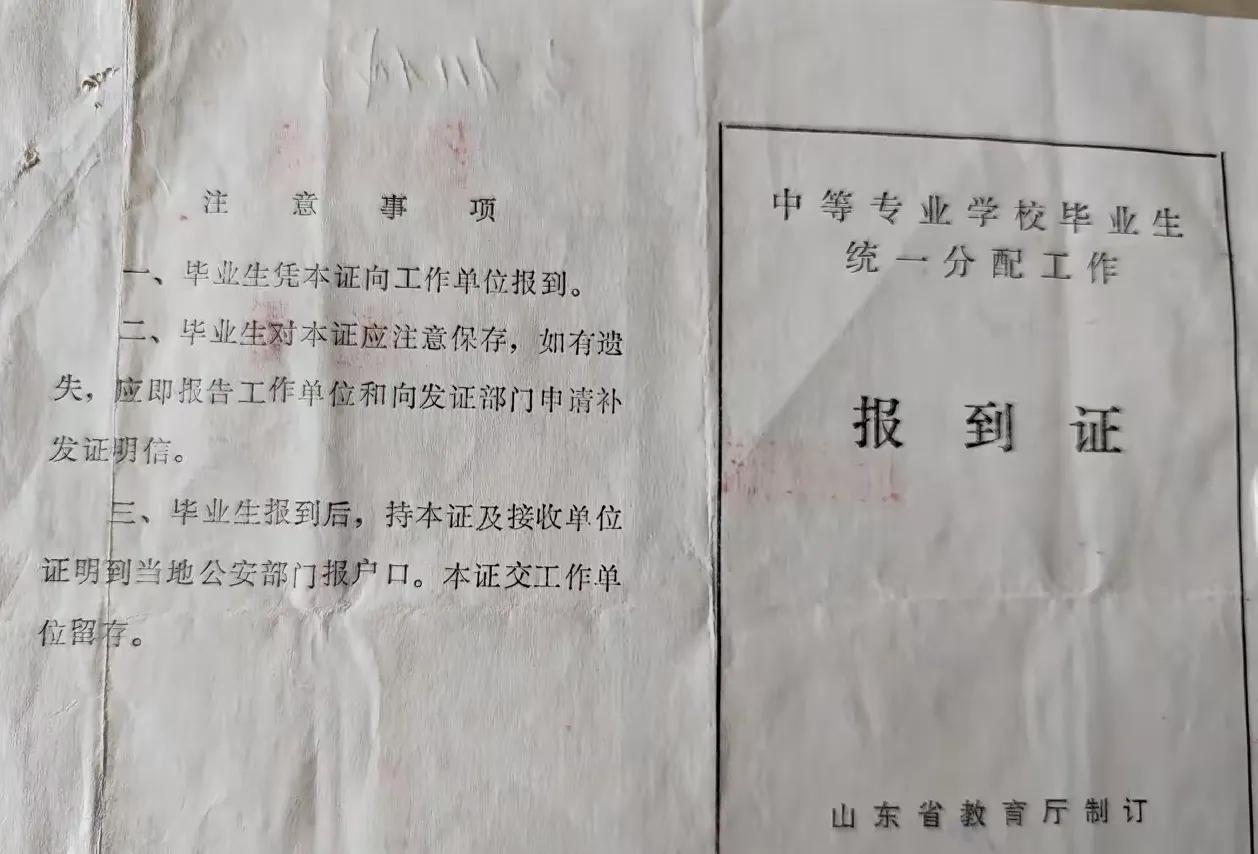 注意事项
一、毕业生凭本证向工作单位报到。
二、毕业生对本证应注意保存，如有遗
失，应即报告工作单位和向发证部门申请补
发证明信。
三、毕业生报到后，持本证及接收单位
证明到当地公安部门报户口。本证交工作单
位留存。
中等专业学校毕业生
统一分配工作
报到证
山东省教育厅制订